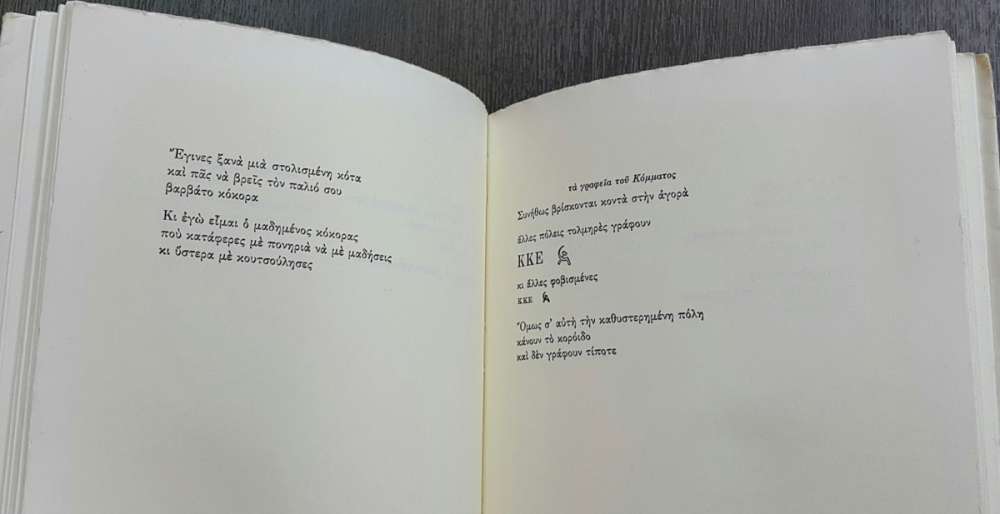 Ἔγινες ξανὰ μιὰ στολισμένη κότα
καὶ πᾶς νὰ βρεῖς τὸν παλιό σου
βαρβάτο κόκορα
Κι ἐγὼ εἶμαι ὁ μαδημένος κόκορας
ποὺ κατάφερες μὲ πονηριὰ νὰ μὲ μαδήσεις
κι ὕστερα μὲ κουτσούλησες
τὰ γραφεῖα τοῦ Κόμματος
Συνήθως βρίσκονται κοντὰ στὴν ἀγορὰ
ἄλλες πόλεις τολμηρὲς γράφουν
ΚΚΕ
κι ἄλλες φοβισμένες
ΚΚΕ
Ὅμως σ' αὐτὴ τὴν καθυστερημένη πόλη
κάνουν τὸ κορόιδο
καὶ δὲν γράφουν τίποτε